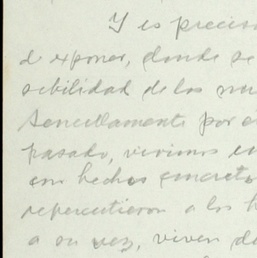 Y es preciso
d exponer, donde se
sibilidad de los mu
sencillamente por e
pasado, vivimos en
con hechos concreto
repercutieron a los h
a su vez, viven de